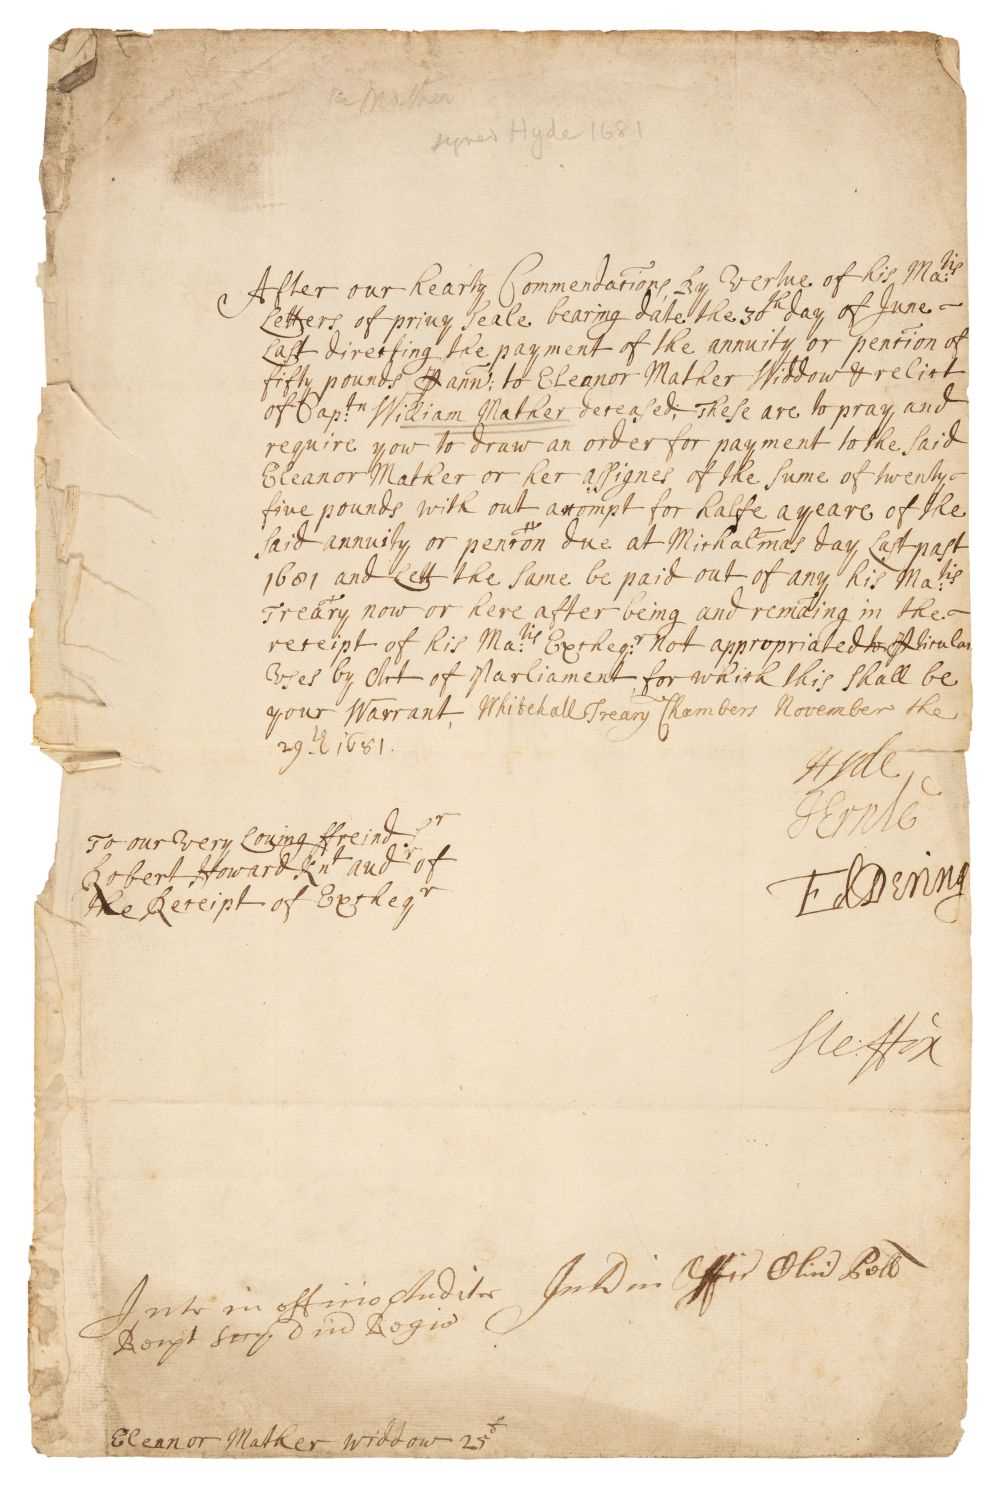 Mather
signed Hyde 1681
After our hearty Commendacons, By Vertue of his Ma:tis
Letters of privy Seale bearing date the 30th day of June
Last directing the payment of the annuity or pencion of
fifty pounds ꝑ ann: to Eleanor Mather Widdow & relict
of Capt:n William Mather deceased, These are to pray and
require yow to draw an order for payment to the said
Eleanor Mather or her assignes of the sume of twenty
five pounds with out accompt for halfe a yeare of the
said annuity or pencon due at Michalmas day Last past
1681 and Lett the same be paid out of any his Ma:tis
Treary now or here after being and remaing in the
receipt of his Ma:tis Excheq:r not appropriated to ꝑticular
Vses by Act of Parliament, for which this shall be
your Warrant, Whitehall Treary Chambers November the
29th 1681.
Hyde
JErnle
Ed Dering
Ste: ffox
To our very Loving ffreind Sr
Robert Howard Knt audr of
the Receipt of Excheqr
Intr in officio Auditor
Recpt Dni Regis
Int in Offic Cleri Pell
Eleanor Mather widdow 25